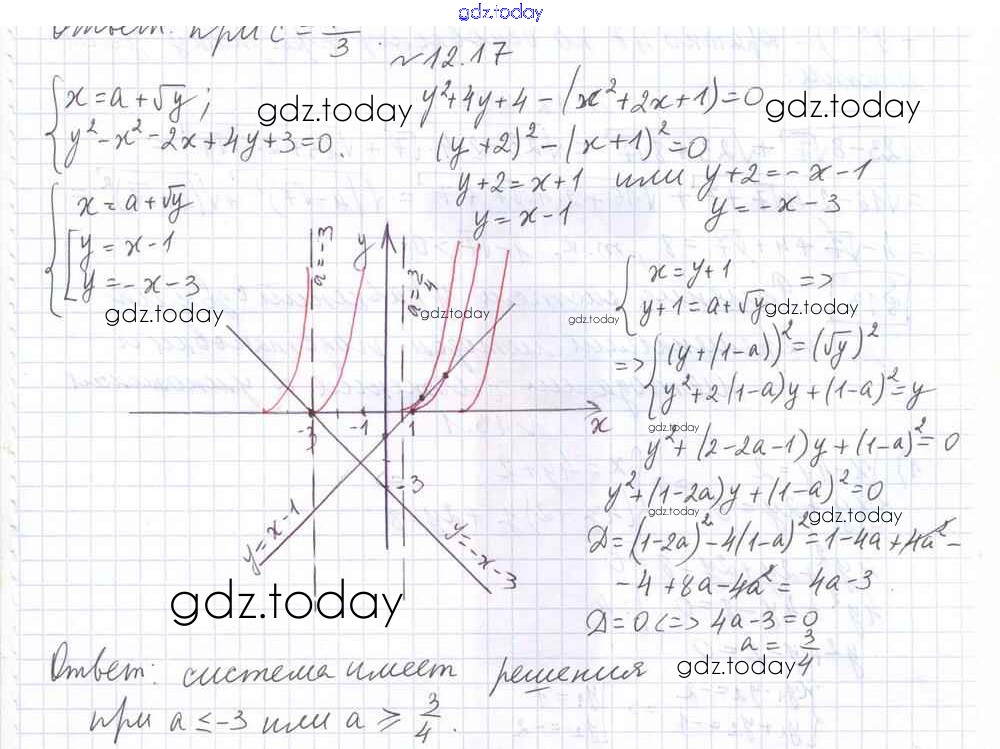 gdz.today
Ответ: при c = 1/3.
№12.17
{ x = a + √y;
y² - x² - 2x + 4y + 3 = 0.
gdz.today
y² + 4y + 4 - (x² + 2x + 1) = 0
gdz.today
(y + 2)² - (x + 1)² = 0
y + 2 = x + 1 или y + 2 = - x - 1
y = x - 1 y = - x - 3
{ x = a + √y
[ y = x - 1
y = - x - 3
gdz.today
a = -3
y
a = 3/4
gdz.today
-3 -1 1 x
-3
y = x - 1
y = - x - 3
{ x = y + 1
y + 1 = a + √y =>
gdz.today
gdz.today
=> { (y + (1 - a))² = (√y)²
y² + 2(1 - a)y + (1 - a)² = y
gdz.today
y² + (2 - 2a - 1)y + (1 - a)² = 0
y² + (1 - 2a)y + (1 - a)² = 0
gdz.today
gdz.today
D = (1 - 2a)² - 4(1 - a)² = 1 - 4a + 4a² -
- 4 + 8a - 4a² = 4a - 3
D = 0 <=> 4a - 3 = 0
a = 3/4
gdz.today
gdz.today
Ответ: система имеет решения
при a ≤ -3 или a ≥ 3/4.